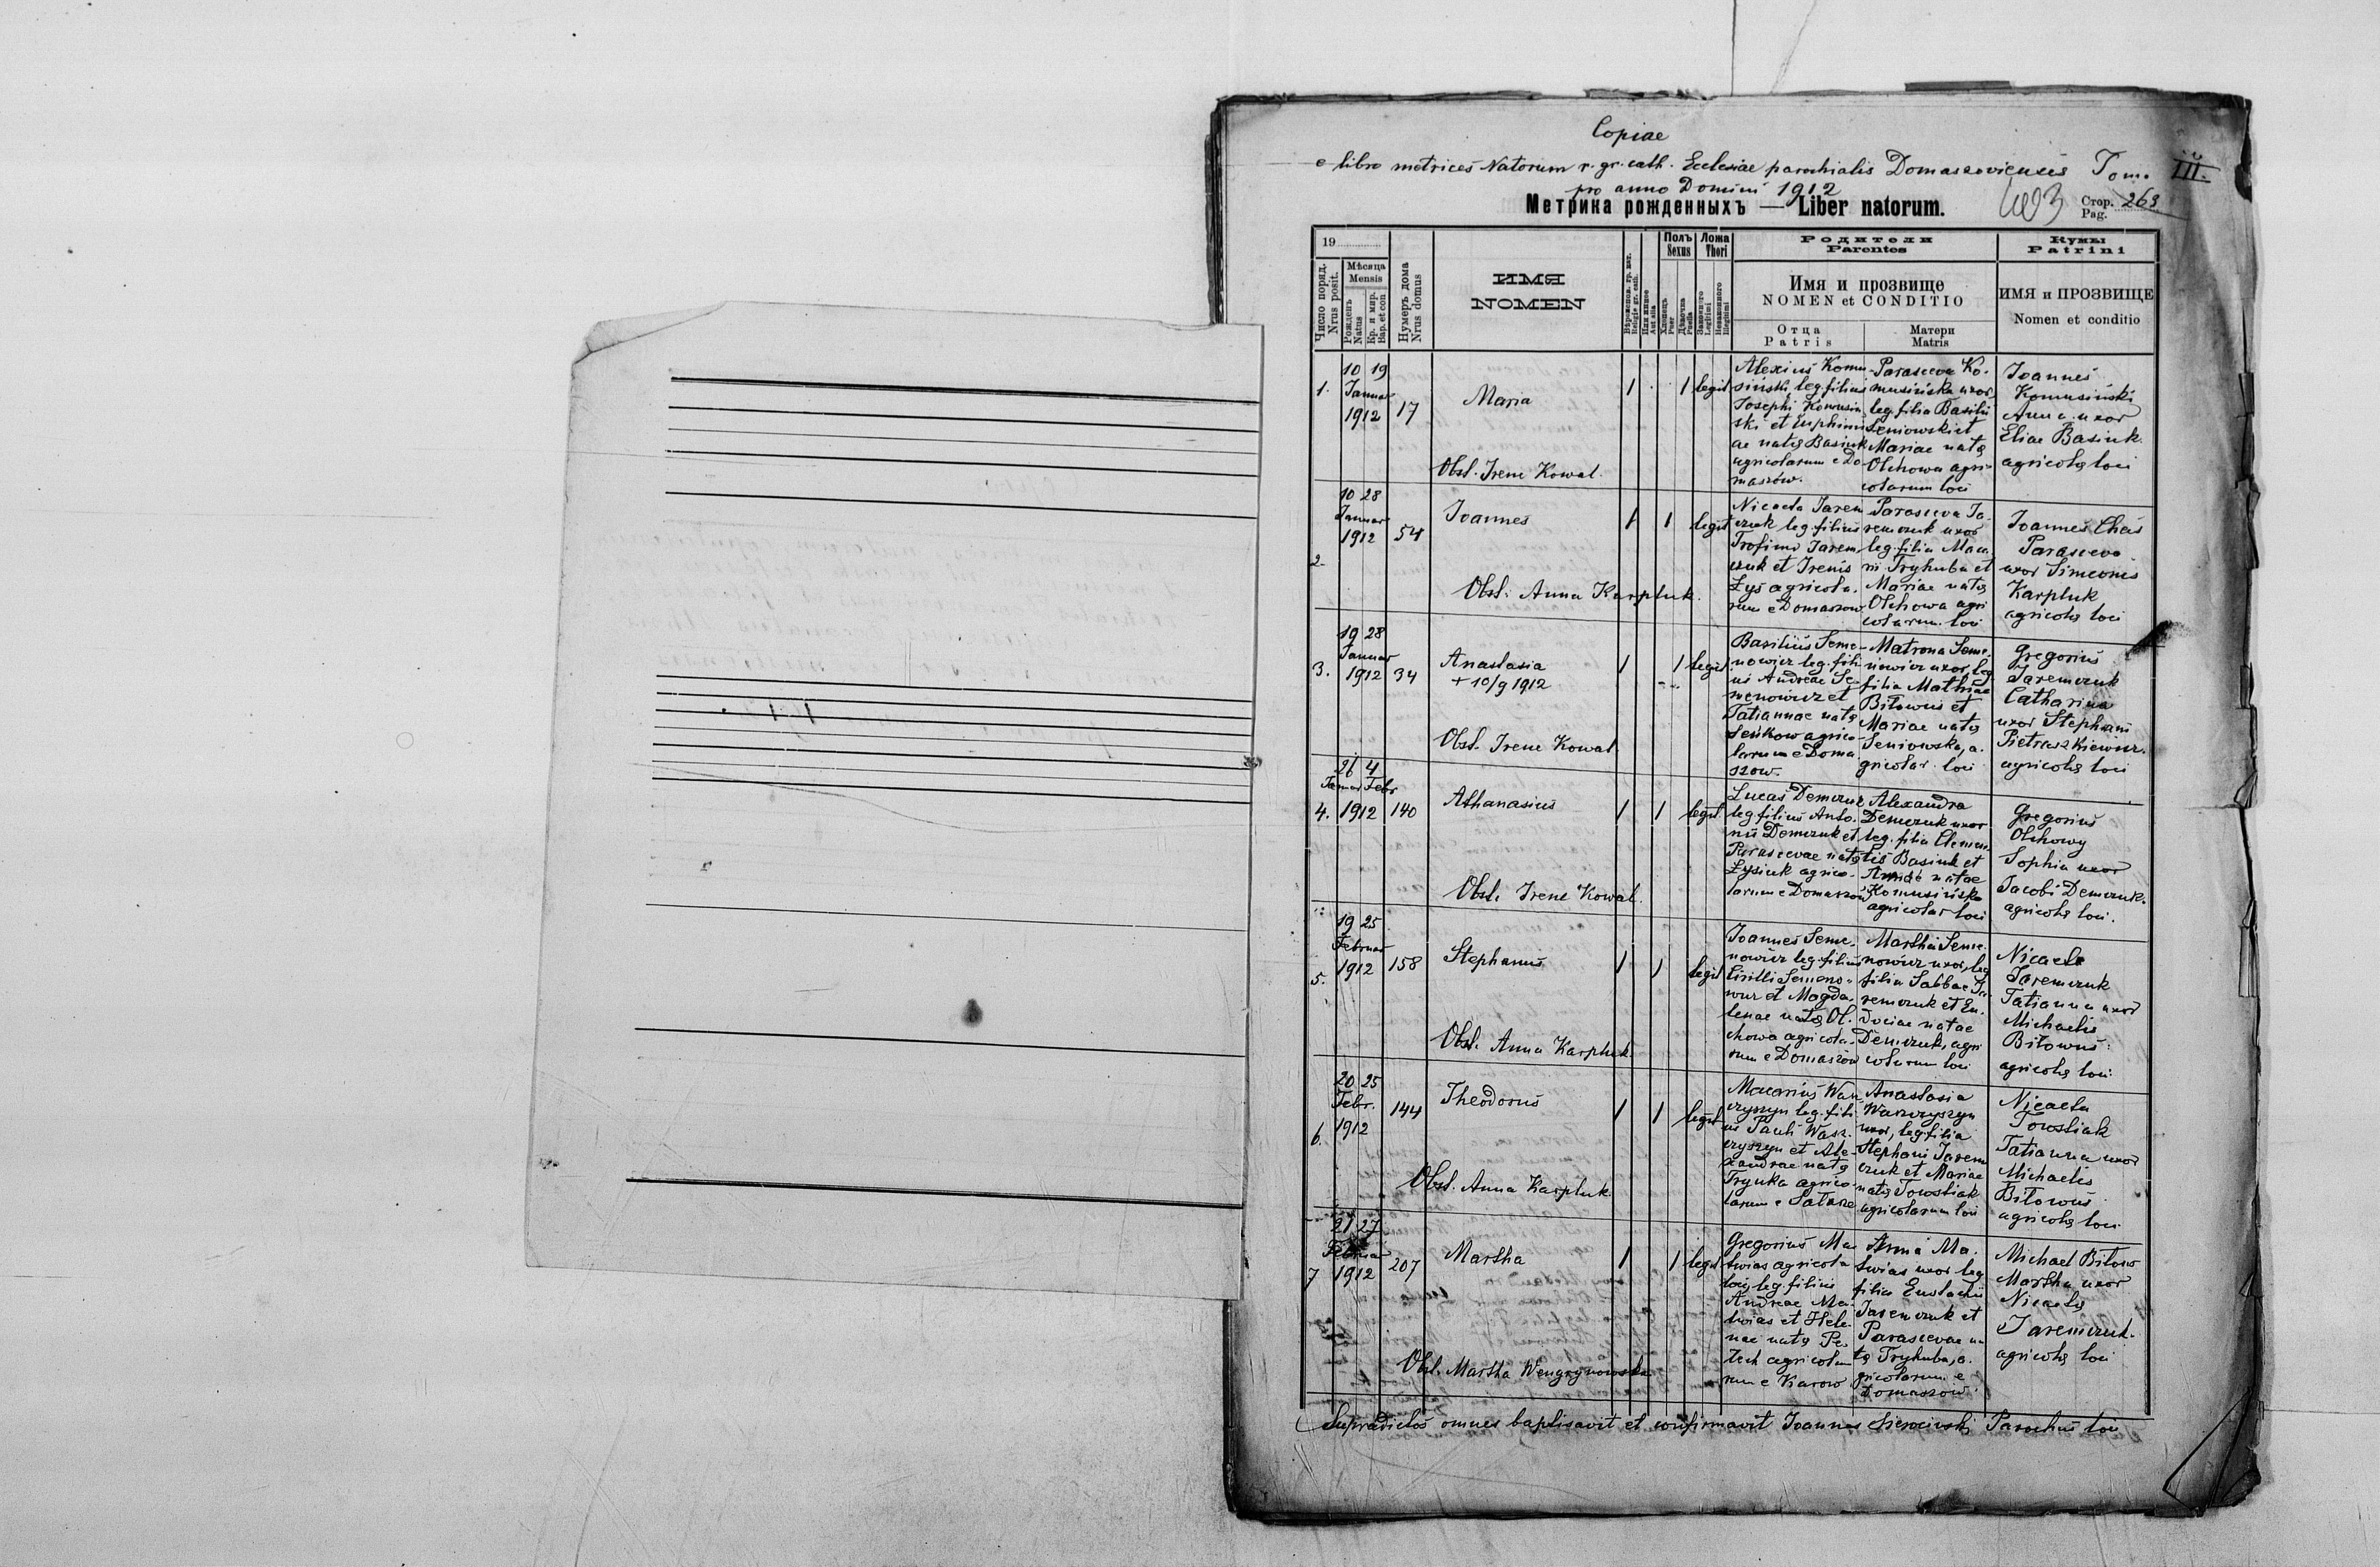 Copiae
e libro metrices Natorum r. gr. cath. Ecclesiae parochialis Domaszoviensis Tom. III.
pro anno Domini 1912
Метрика рожденныхъ — Liber natorum.
Стор. Pag. 263
19
Число поряд. Nrus posit.
Мѣсяца Mensis
Рожденъ Natus
Кр. и мир. Bap. et con
Нумеръ дома Nrus domus
ИМЯ
NOMEN
Полъ Sexus
Хлопецъ Puer
Дѣвочка Puella
Ложа Thori
Законного Legitimi
Незаконного Illegitimi
Родители
Parentes
Имя и прозвище
NOMEN et CONDITIO
Отца
Patris
Матери
Matris
Кумы
Patrini
ИМЯ и ПРОЗВИЩЕ
Nomen et conditio
1.
10 19
Januar
1912
17
Maria
Obst. Irene Kowal.
1 1 legit
Alexius Komu-
siński leg. filius
Josephi Komusiń
ski et Euphimi
ae natę Basiuk
agricolarum e Do-
maszów.
Parasceva Ko-
musińska uxor
leg. filia Basilii
Seniowski et
Mariae natę
Olchowa agri-
colarum loci
Joannes
Komusiński
Anna uxor
Eliae Basiuk
agricolę loci
2.
10 28
Januar
1912
54
Joannes
Obst. Anna Karpluk.
1 1 legit
Nicaeta Jarem
czuk leg. filius
Trofimi Jarem
czuk et Irenis
Łyś agricola-
rum e Domaszow
Parasceva Ja-
remczuk uxor
leg. filia Maca-
rii Tryhuba et
Mariae natę
Olchowa agri
colarum loci
Joannes
Parasceva
uxor Simeonis
Karpluk
agricolę loci
3.
19 28
Januar
1912
34
Anastasia
+ 10/9 1912
Obst. Irene Kowal
1 1 legit
Basilius Seme-
nowicz leg. fili
us Andreae Se-
menowicz et
Tatiannae natę
Seńkow agrico-
larum e Doma
szow.
Matrona Seme-
nowicz uxor, leg
filia Mathiae
Bitowus et
Mariae natę
Seniowska, a-
gricolar. loci
Gregorius
Jaremczuk
Catharina
uxor Stephani
Pietraszkiewicz.
agricolę loci
4.
26 4
Januar Febr
1912
140
Athanasius
Obst. Irene Kowal.
1 1 legit
Lucas Demczuk
leg filius Anto-
nii Demczuk et
Parascevae natę
Łysiuk agrico-
larum e Domaszow
Alexandra
Demczuk uxor
leg. filia Clemen-
tis Basiuk et
natae
Komusińska
agricolar loci
Gregorius
Olchowy
Sophia uxor
Jacobi Demczuk.
agricolę loci.
5.
19 25
Februar
1912
158
Stephanus
Obst. Anna Karpluk
1 1 legit
Joannes Seme-
nowicz leg. filius
Cirilli Semeno-
wicz et Magda-
lenae natę Ol-
chowa agricola-
rum e Domaszow
Martha Seme-
nowicz uxor, leg
filia Sabbae Ja-
remczuk et Eu-
dociae natae
Demczuk, agri
colarum loci
Nicaeta
Jaremczuk
Tatianna uxor
Michaelis
Bitowus
agricolę loci
6.
20 25
Febr.
1912
144
Theodorus
Obst. Anna Karpluk.
1 1 legit
Macarius Wasz
czyszyn leg. fili-
us Pauli Wasz-
czyszyn et Ale-
xandrae natę
Frynka agrico-
larum e
Anastasia
Waszczyszyn
uxor, leg. filia
Stephani Jarem
czuk et Mariae
natę Towstiak
agricolarum loci
Nicaeta
Towstiak
Tatianna uxor
Michaelis
Bitowus
agricolę loci
7
21 27
Februar
1912
207
Martha
Obst. Martha Wengrynowska
1 1 legit
Gregorius Ma
twias agricola
loci, leg. filius
Andreae Ma-
twias et Hele-
nae natę Pe-
tech agricola
rum e Karow
Anna Ma-
twias uxor leg
filia Eustachii
Jaremczuk et
Parascevae na
tę Tryhuba, a-
gricolarum e
Domaszow.
Michael Bitow
Martha uxor
Nicaetę
Jaremczuk.
agricolę loci
Supradictos omnes baptisavit et confirmavit Joannes Parochus loci